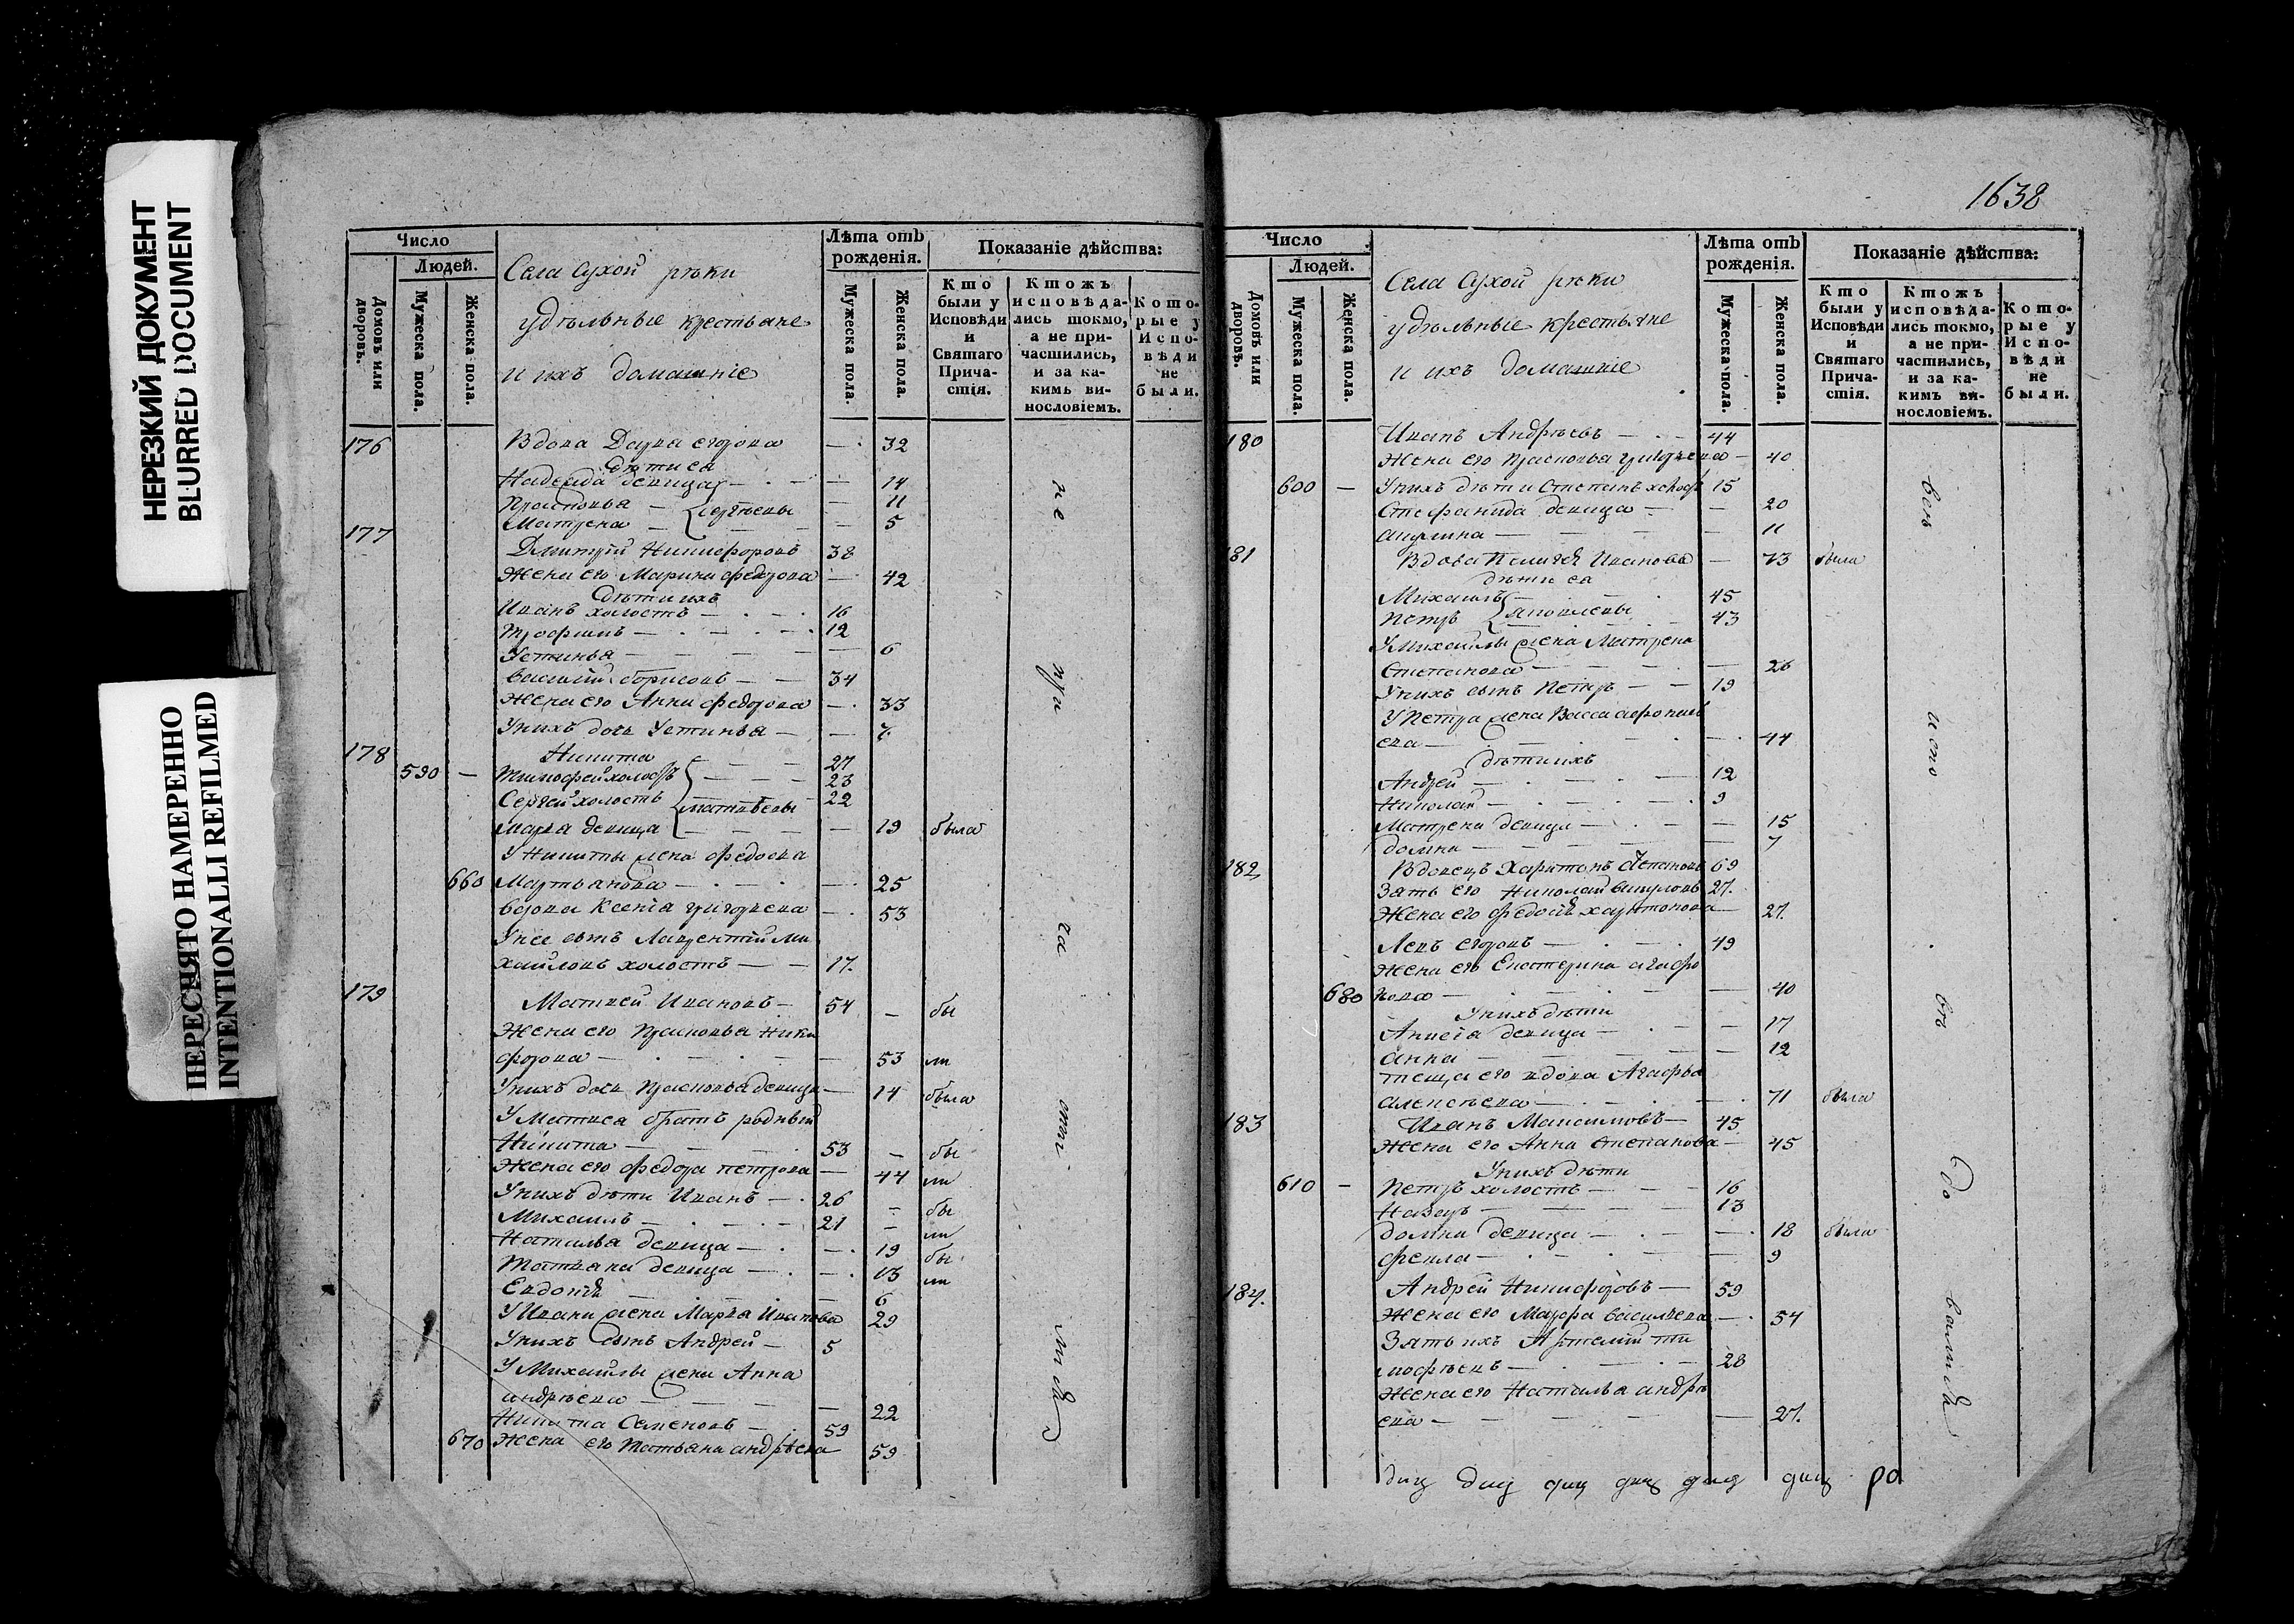 НЕРЕЗКИЙ ДОКУМЕНТ
BLURRED DOCUMENT
ПЕРЕСНЯТО НАМЕРЕННО
INTENTIONALLI REFILMED
Число
Людей.
Домовъ или дворовъ.
Мужеска пола.
Женска пола.
Села Сухой рѣки
удѣльные крестьяне
и ихъ домашніе
Лѣта отъ рожденія.
Мужеска пола.
Женска пола.
Показаніе дѣйства:
Кто были у Исповѣди и Святаго Причастія.
Ктожъ исповѣдались токмо, а не причастились, и за какимъ винословіемъ.
Которые у Исповѣди не были.
176 Вдова Дарья егорова — 32
дѣти ея
Надежда девица — 14
Прасковья — 11
Сергѣевы
Матрена — 5
177
Дмитрій Никифоровъ 38
Жена его Марина федорова — 42
дѣти ихъ
Иванъ холостъ — 16
Трофимъ — 12
Устинья — 6
василій борисовъ — 34
Жена его Анна федорова — 33
Унихъ дочь Устинья — 7
178 Никита — 27
590 — Тимофей холостъ — 23
Сергей холостъ — 22
матвѣевы
Марья девица — 19 была
У Никиты жена федосья
660 Мартьянова — 25
вдова Ксенія григорьева — 53
Унее сынъ Лаврентій Ми
хайловъ холостъ — 17.
179 Матвей Ивановъ — 54 — бы
Жена его Прасковья Ники
форова — 53 ли
Унихъ дочь Прасковья девица — 14 была
У Матвея братъ родный
Никита — 53 — бы
Жена его федора петрова — 44 ли
Унихъ дѣти Иванъ — 26 — бы
Михаилъ — 21 — ли
Наталья девица — 19 бы
Татьяна девица — 13 ли
Евдокія — 6
У Ивана жена Марья Иванова 29
Унихъ сынъ Андрей — 5
У Михайлы жена Анна
андрѣева — 22
Никита Семеновъ — 59
670 Жена его Татьяна андрѣева 59
не при ча сти лся
1638
Число
Людей.
Домовъ или дворовъ.
Мужеска пола.
Женска пола.
Села Сухой рѣки
удѣльные крестьяне
и ихъ домашніе
Лѣта отъ рожденія.
Мужеска пола.
Женска пола.
Показаніе дѣйства:
Кто были у Исповѣди и Святаго Причастія.
Ктожъ исповѣдались токмо, а не причастились, и за какимъ винословіемъ.
Которые у Исповѣди не были.
180 Иванъ Андрѣевъ — 44
Жена его Прасковья григорьева — 40
600 — Унихъ дѣти Степанъ холостъ 15
Стефанида девица — 20
акулина — 11
181 Вдова Пелагея Иванова — 73 была
дѣти ея
Михаилъ — 45
яковлевы
Петръ 43
У Михайлы жена Матрена
Степанова — 26
Унихъ сынъ Петръ — 19
У Петра жена Васса афонась
ева — 44
дѣти ихъ
Андрей — 12
Николай — 9
Матрена девица — 15
домна — 7
182 Вдовецъ Харитонъ Степановъ 69
Зять его Николай викуловъ 27.
Жена его федосья харитонова — 27.
Левъ егоровъ — 49
Жена его Екатерина агафо
680 нова — 40
Унихъ дѣти
Анисія девица — 17
анна — 12
теща его вдова Агафья
алексѣева — 71 была
183 Иванъ Максимовъ — 45
Жена его Анна Степанова — 45
Унихъ дѣти
610 — Петръ холостъ — 16
Назаръ — 13
домна девица — 18 была
фекла — 9
184. Андрей Никифоровъ — 59
Жена его Марфа василѣева — 54
Зять ихъ Артемій ти
мофѣевъ — 28
Жена его Наталья андрѣ
ева — 27.